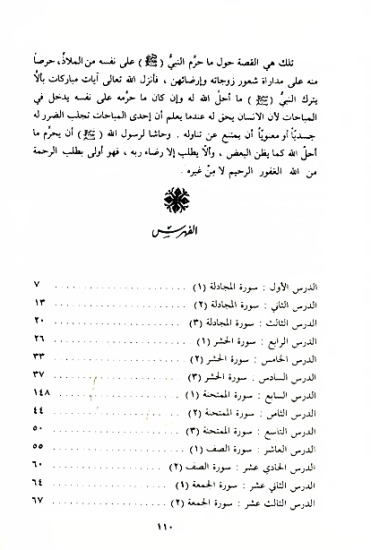 تلك هي القصة حول ما حرَّم النبيُّ (ﷺ) على نفسه من الملاذِّ، حرصاً
منه على مداراة شعور زوجاته وإرضائهن، فأنزل الله تعالى آيات مباركات بألَّا
يترك النبيُّ (ﷺ) ما أحلَّ الله له وإن كان ما حرَّمه على نفسه يدخل في
المباحات لأن الانسان يحق له عندما يعلم أن إحدى المباحات تجلب الضرر له
جسديّاً أو معنويّاً أن يمتنع عن تناوله . وحاشا لرسول الله (ﷺ) أن يحرِّم ما
أحلَّ الله كما يظن البعض ، وألَّا يطلب إلا رضاء ربه ، فهو أولى بطلب الرحمة
من الله الغفور الرحيم لا مِنْ غيره .
الفهرس
الدرس الأول : سورة المجادلة (١) ٧
الدرس الثاني : سورة المجادلة (٢) ١٣
الدرس الثالث : سورة المجادلة (٣) ٢٠
الدرس الرابع : سورة الحشر (١) ٢٦
الدرس الخامس : سورة الحشر (٢) ٣٣
الدرس السادس : سورة الحشر (٣) ٣٧
الدرس السابع : سورة الممتحنة (١) ١٤٨
الدرس الثامن : سورة الممتحنة (٢) ٤٤
الدرس التاسع : سورة الممتحنة (٣) ٥٠
الدرس العاشر : سورة الصف (١) ٥٥
الدرس الحادي عشر : سورة الصف (٢) ٦٠
الدرس الثاني عشر : سورة الجمعة (١) ٦٤
الدرس الثالث عشر : سورة الجمعة (٢) ٦٧
١١٠